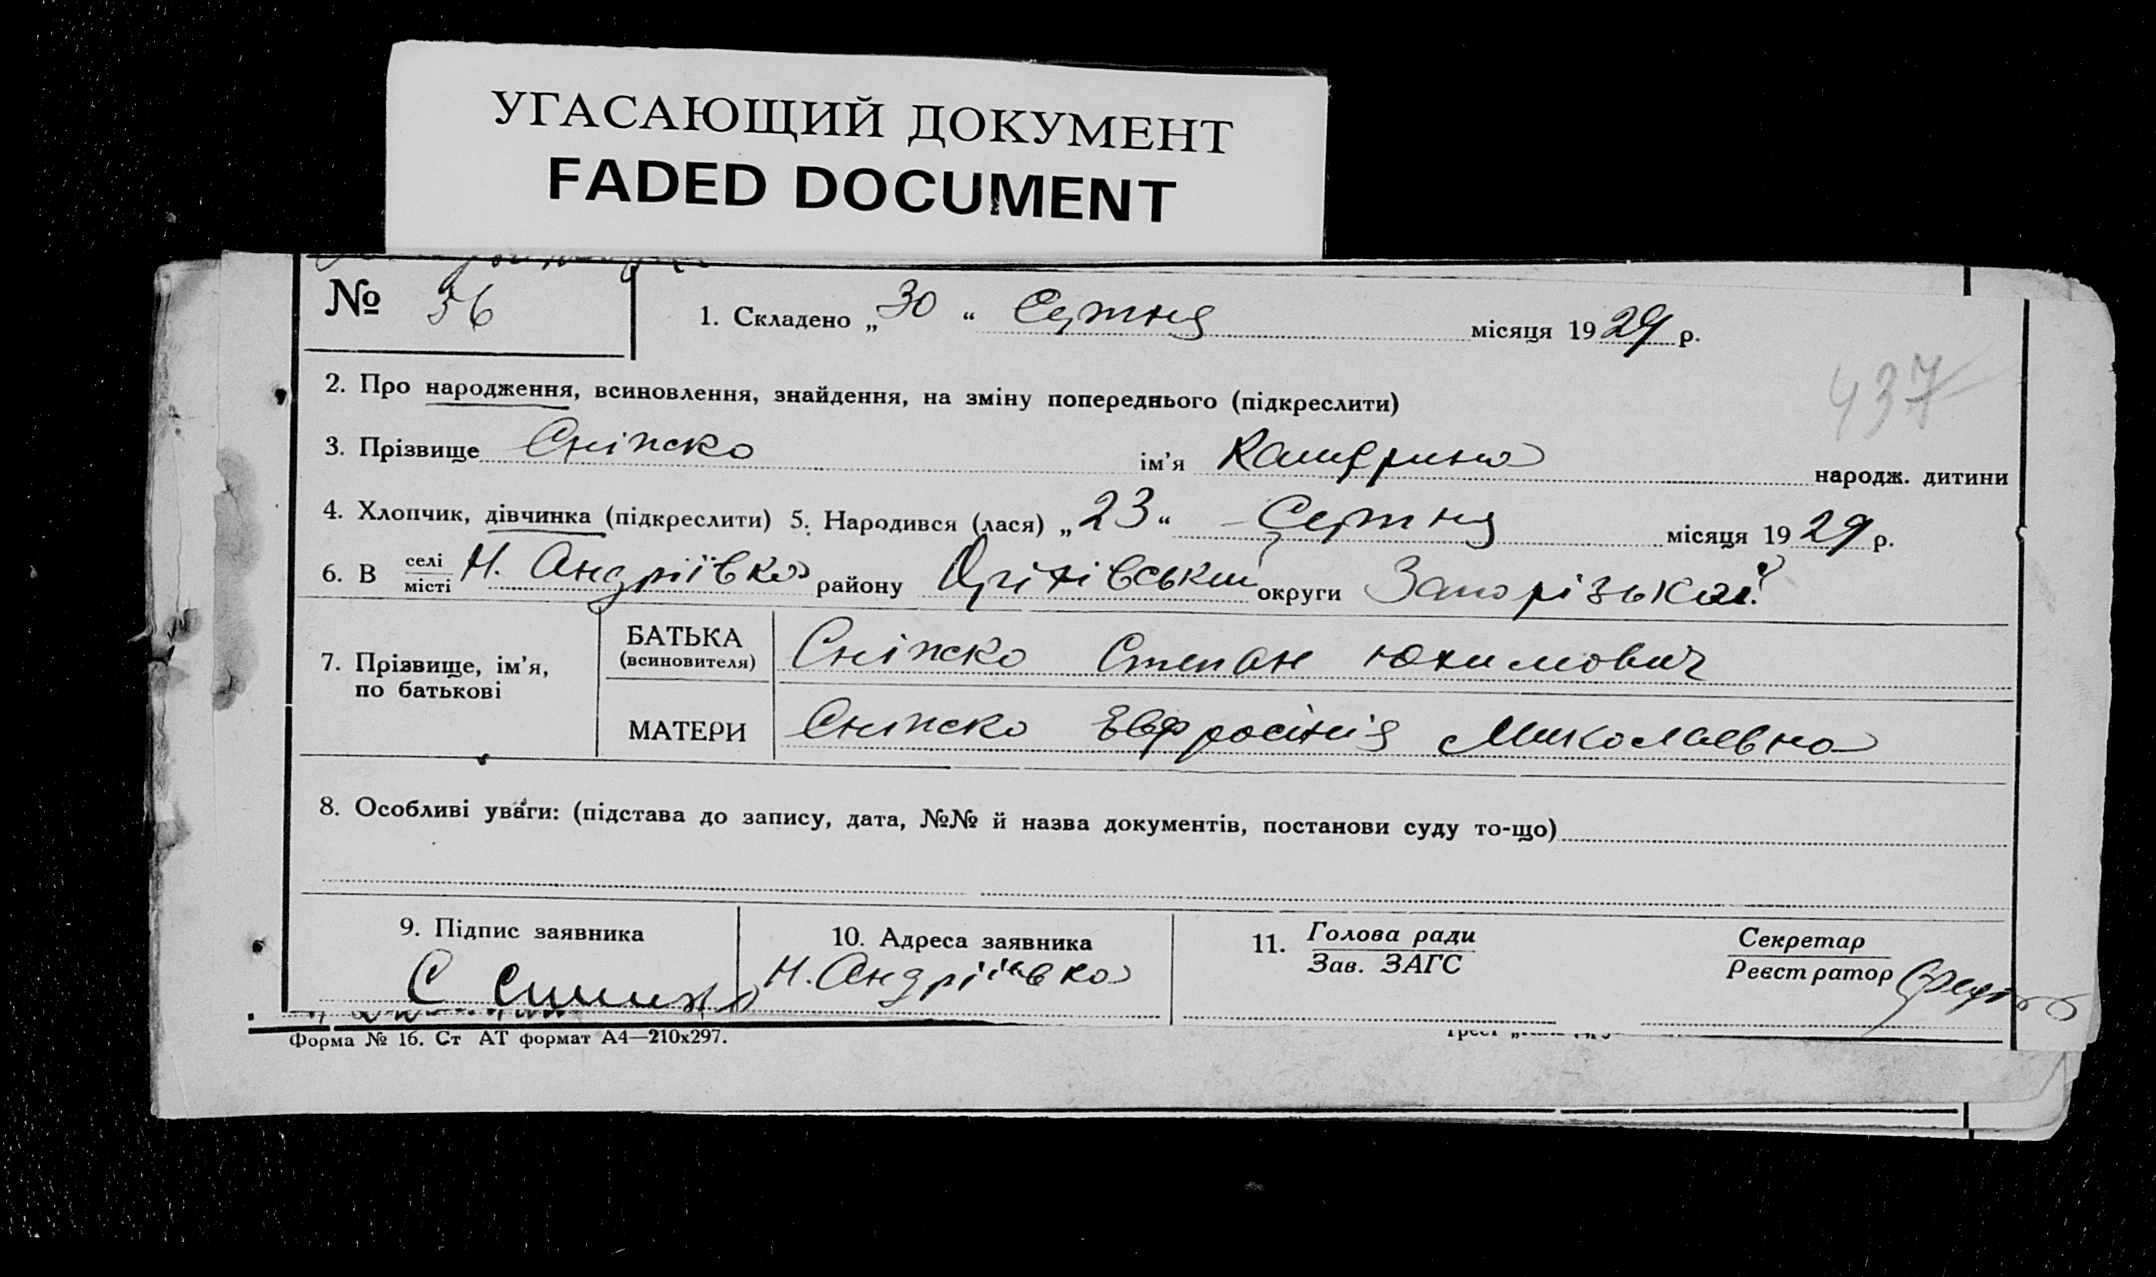 УГАСАЮЩИЙ ДОКУМЕНТ
FADED DOCUMENT
№ 56
1. Складено „30“ Сутня місяця 1929 р.
437
2. Про народження, всиновлення, знайдення, на зміну попереднього (підкреслити)
3. Прізвище Сніжко ім’я Катерина народж. дитини
4. Хлопчик, дівчинка (підкреслити) 5. Народився (лася) „23“ Сутня місяця 1929 р.
6. В селі/місті Н. Андріївка району Оріхівський округи Запорізької
7. Прізвище, ім’я, по батькові
БАТЬКА (всиновителя) Сніжко Степан Юхимович
МАТЕРИ Сніжко Евфросінія Миколаевна
8. Особливі уваги: (підстава до запису, дата, №№ й назва документів, постанови суду то-що)
9. Підпис заявника
С
10. Адреса заявника
Н. Андріївка
11. Голова ради
Зав. ЗАГС
Секретар
Реєстратор
Форма № 16. Ст АТ формат А4—210х297.